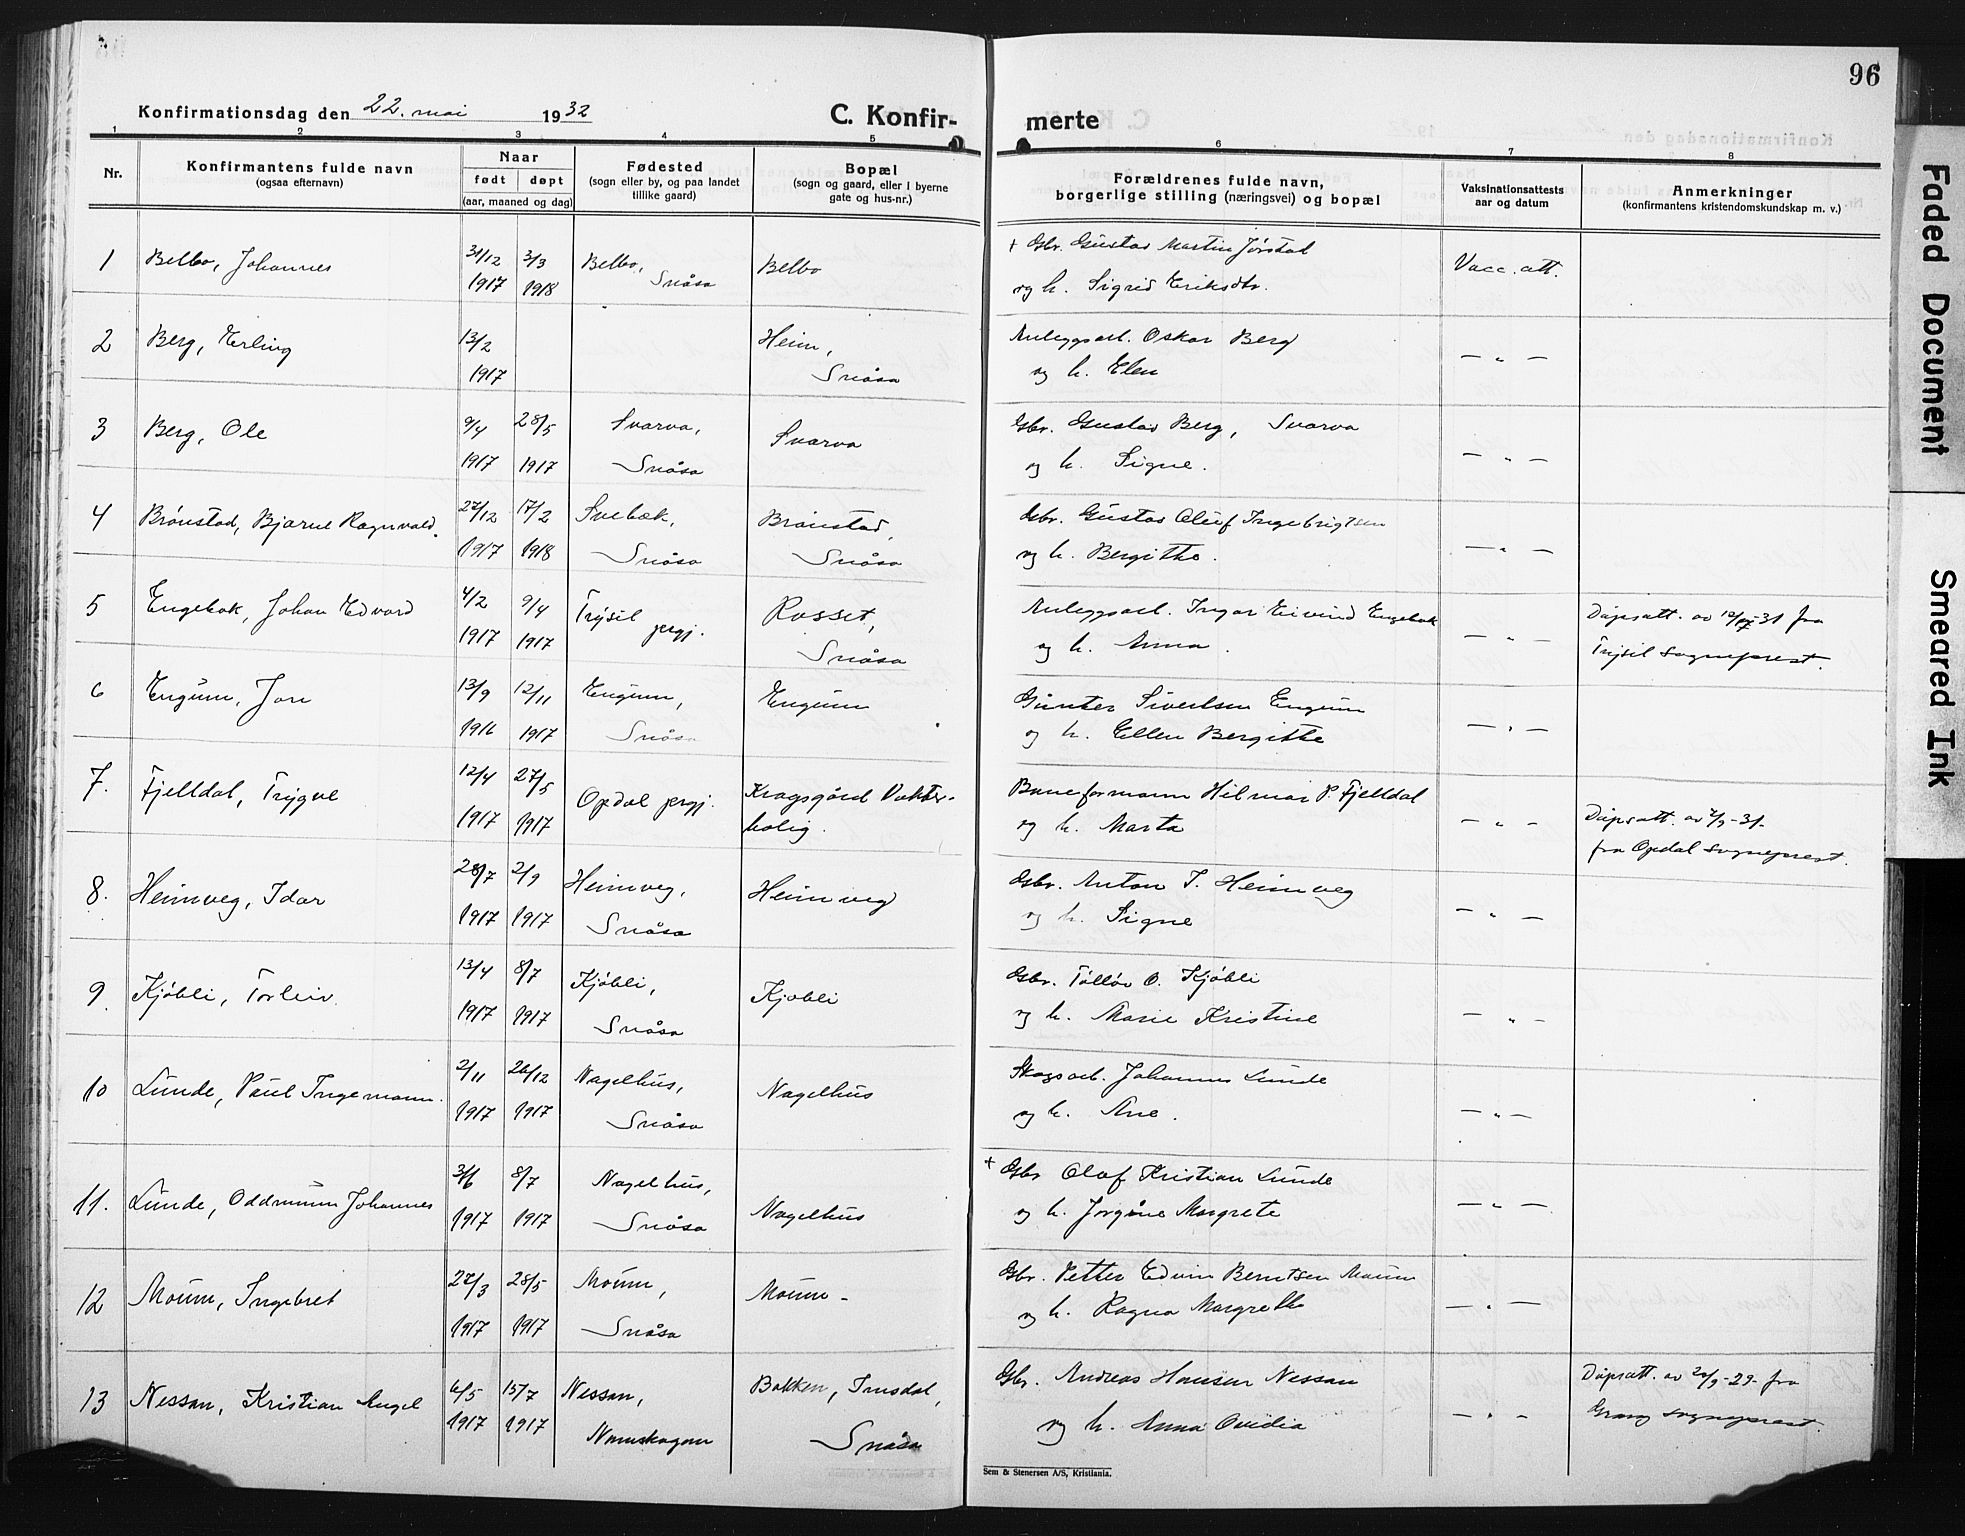 96
Konfirmationsdag den 22. mai 1932
C. Konfir-
merte
1 2 3 4 5 6 7 8
Nr.
Konfirmantens fulde navn
(ogsaa efternavn)
Naar
født døpt
(aar, maaned og dag)
Fødested
(sogn eller by, og paa landet
tillike gaard)
Bopæl
(sogn og gaard, eller i byerne
gate og hus-nr.)
Forældrenes fulde navn,
borgerlige stilling (næringsvei) og bopæl
Vaksinationsattests
aar og datum
Anmerkninger
(konfirmantens kristendomskundskap m. v.)
1 Belbo, Johannes 31/12 3/3 Belbo, Belbo + Gbr. Gustav Martin Jørstad Vacc. att.
1917 1918 Snåsa og h. Sigrid Eriksdtr.
2 Berg, Erling 13/2 Heim, Anleggsarb. Oskar Berg — " —
1917 Snåsa og h. Elen
3 Berg, Ole 9/4 28/5 Svarva, Svarva Gbr. Gustav Berg, Svarva
1917 1917 Snåsa og h. Signe. — " —
4 Brønstad, Bjarne Ragnvald. 27/12 17/2 Svebæk, Brønstad, Gbr. Gustav Oluf Ingebrigtsen
1917 1918 Snåsa Snåsa og h. Bergitte. — " —
5 Engebak, Johan Edvard 4/2 9/4 Trysil prgj. Rosset, Anleggsarb. Ingar Eivind Engebak — " — Dåpsatt. av -31 fra
1917 1917 Snåsa og h. Anna. Trysil sogneprest.
6 Engum, Jon 13/9 12/11 Engum, Engum Gunter Sivertsen Engum — " —
1916 1917 Snåsa og h. Ellen Bergitte
7. Fjelldal, Trygve 12/4 27/5 Opdal prgj. Kragsgård Vokter- Baneformann Hilmar P. Fjelldal Dåpsatt. av -31.
1917 1917 bolig. og h. Marta — " — fra Opdal sogneprest.
8. Heimveg, Idar 28/7 2/9 Heimveg, Heimveg Gbr. Anton T. Heimveg
1917 1917 Snåsa og h. Signe — " —
9. Kjøbli, Torleiv. 13/4 8/7 Kjøbli, Kjøbli Gbr. Tølløv O. Kjøbli
1917 1917 Snåsa og h. Marie Kristine — " —
10 Lunde, Paul Ingemann. 2/11 26/12 Nagelhus, Nagelhus Skogsarb. Johannes Lunde
1917 1917 Snåsa og h. Ane. — " —
11. Lunde, Oddmunn Johannes 3/6 8/7 Nagelhus, Nagelhus + Gbr Olaf Kristian Lunde
1917 1917 Snåsa og h. Jørgine Margrete — " —
12 Moum, Ingebret 27/3 28/5 Moum, Moum - Gbr. Petter Edvin Berntsen Moum
1917 1917 Snåsa og h. Ragna Margrethe — " —
13 Nessan, Kristian Angel 6/5 15/7 Nessan, Bakken, Imsdal, Gbr. Andreas Hansen Nessan Dåpsatt. av -29. fra
1917 1917 Namskogan Snåsa og h. Anna Ovidia — " — Grong sogneprest.
Sem & Stenersen A/S, Kristiania.
Faded Document
Smeared Ink